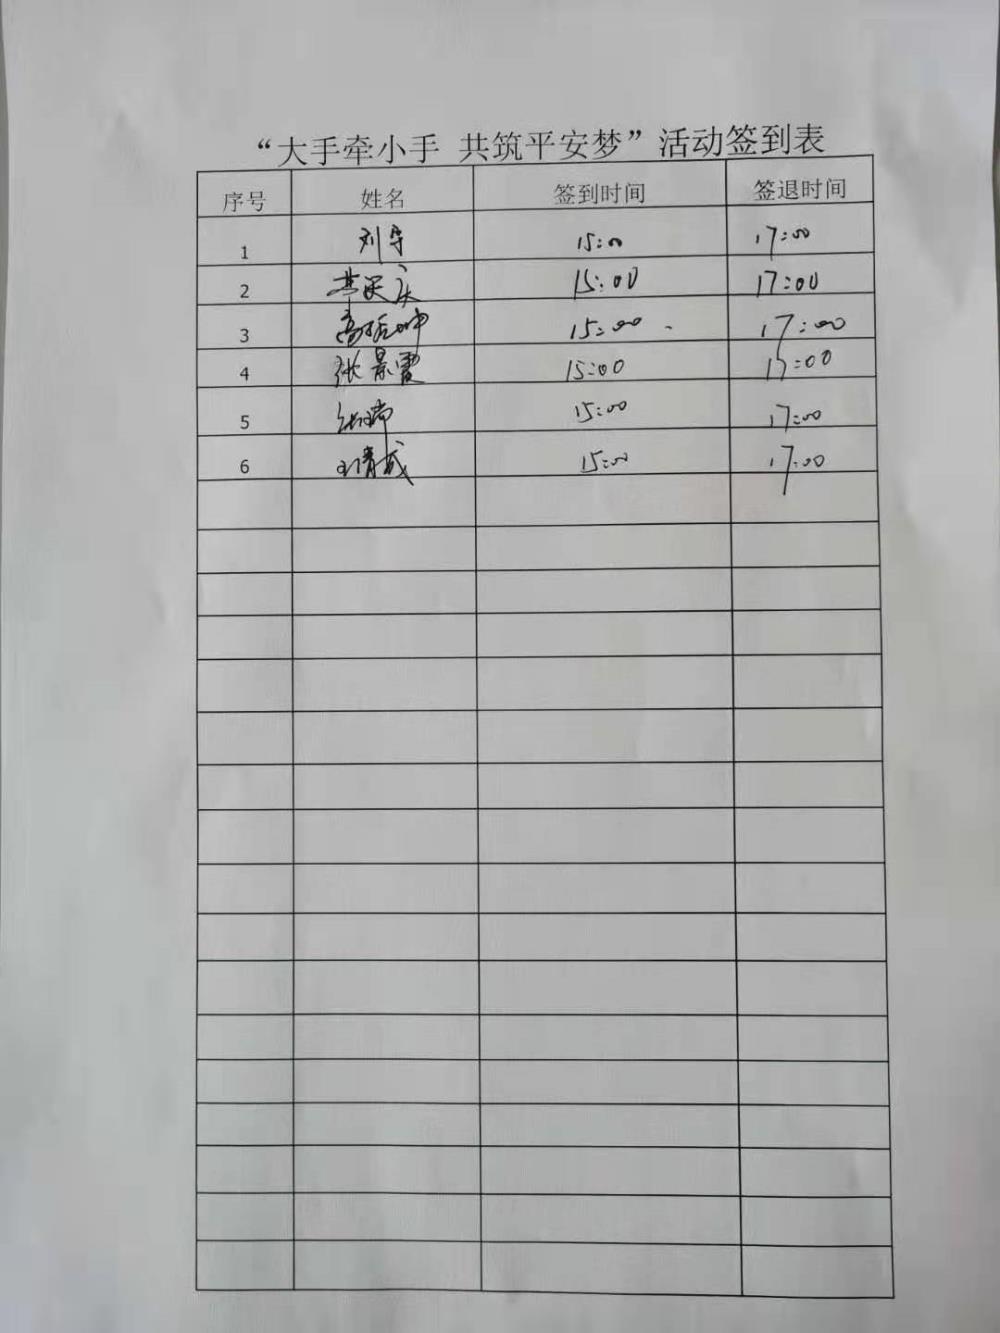 “大手牵小手 共筑平安梦”活动签到表
序号 姓名 签到时间 签退时间
1 刘 15:00 17:00
2 15:00 17:00
3 15:00 17:00
4 张景霞 15:00 17:00
5 张瑞 15:00 17:00
6 王倩 15:00 17:00